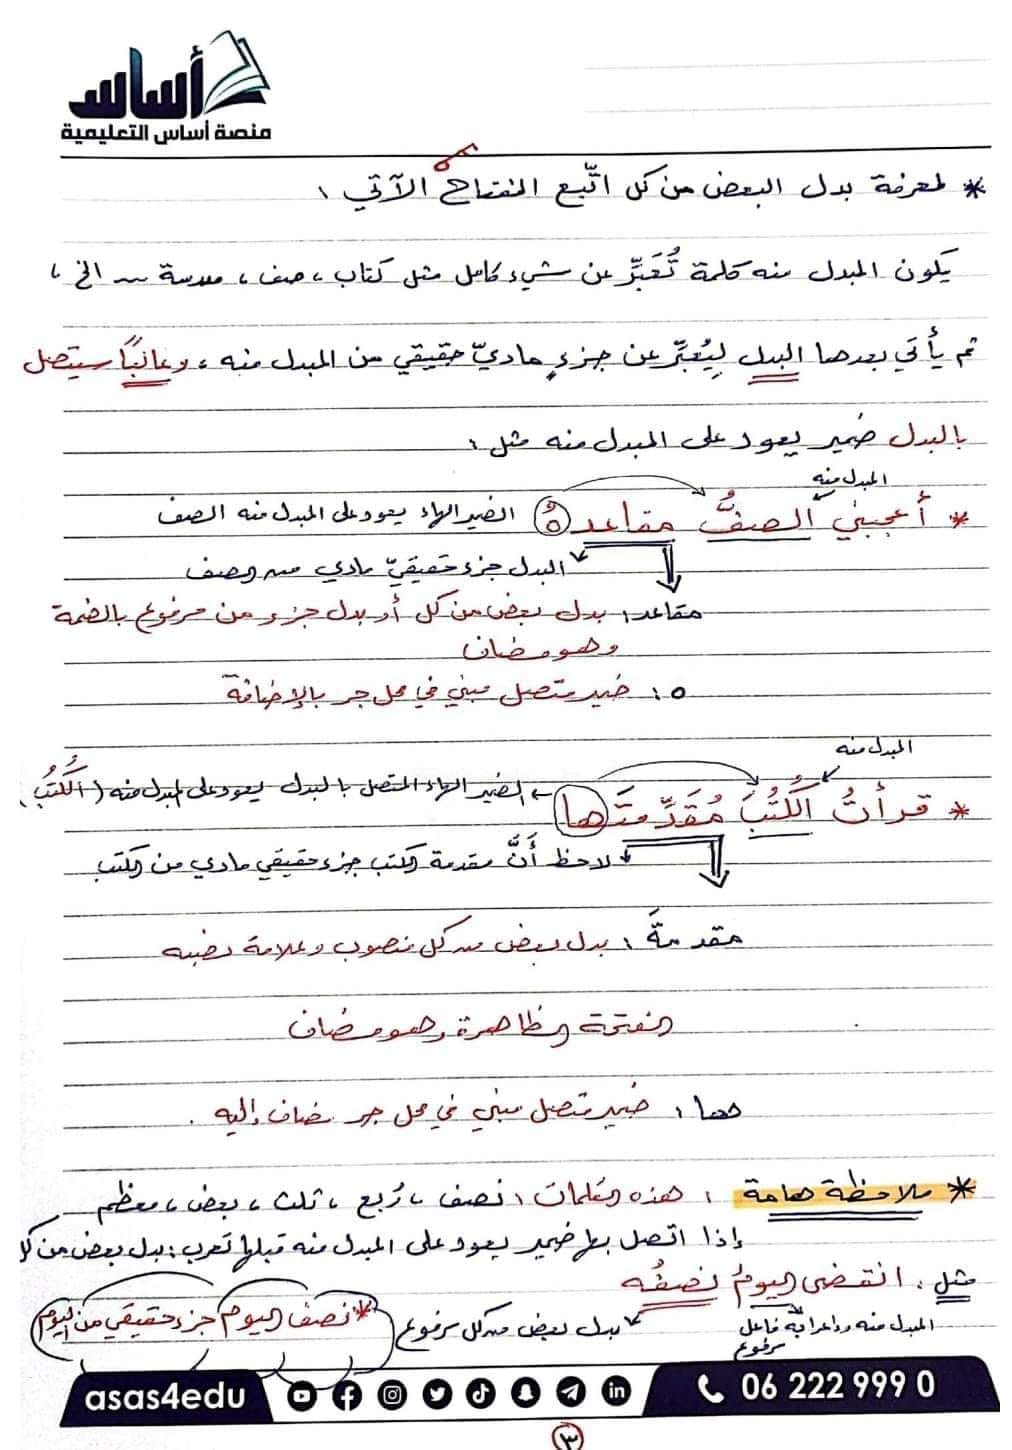 أساس
منصة أساس التعليمية
* لمعرفة بدل البعض من كل اتّبع المفتاح الآتي :
يكون المبدل منه كلمة تُعَبِّر عن شيء كامل مثل كتاب ، صف ، مدرسة ... الخ ،
ثم يأتي بعدها البدل لِيُعبِّر عن جزءٍ ماديّ حقيقي من المبدل منه ، وغالبًا سيتصل
بالبدل ضمير يعود على المبدل منه مثل :
المبدل منه
* أعجبني الصفُّ مقاعدهُ
الضمير الهاء يعود على المبدل منه الصف
البدل جزء حقيقيّ مادي من الصف
مقاعد : بدل بعض من كل أو بدل جزء من مرفوع بالضمة
وهو مضاف
ه : ضمير متصل مبني في محل جر بالإضافة
المبدل منه
* قرأتُ الكُتُبَ مُقَدِّمتَها
الضمير الهاء المتصل بالبدل يعود على المبدل منه (الكُتُبُ)
لاحظ أَنَّ مقدمة الكتب جزء حقيقي مادي من الكتب
مقدمةَ : بدل بعض من كل منصوب وعلامة نصبه
الفتحة الظاهرة وهو مضاف
ها : ضمير متصل مبني في محل جر مضاف إليه .
* ملاحظة هامة : هذه الكلمات : نصف ، رُبع ، ثلث ، بعض ، معظم
إذا اتصل بها ضمير يعود على المبدل منه قبلها تعرب : بدل بعض من كل
مثل : انقضى اليومُ نصفُه
المبدل منه وإعرابه فاعل
مرفوع
بدل بعض من كل مرفوع
* نصف اليوم جزء حقيقي من اليوم
asas4edu
06 222 999 0
٣